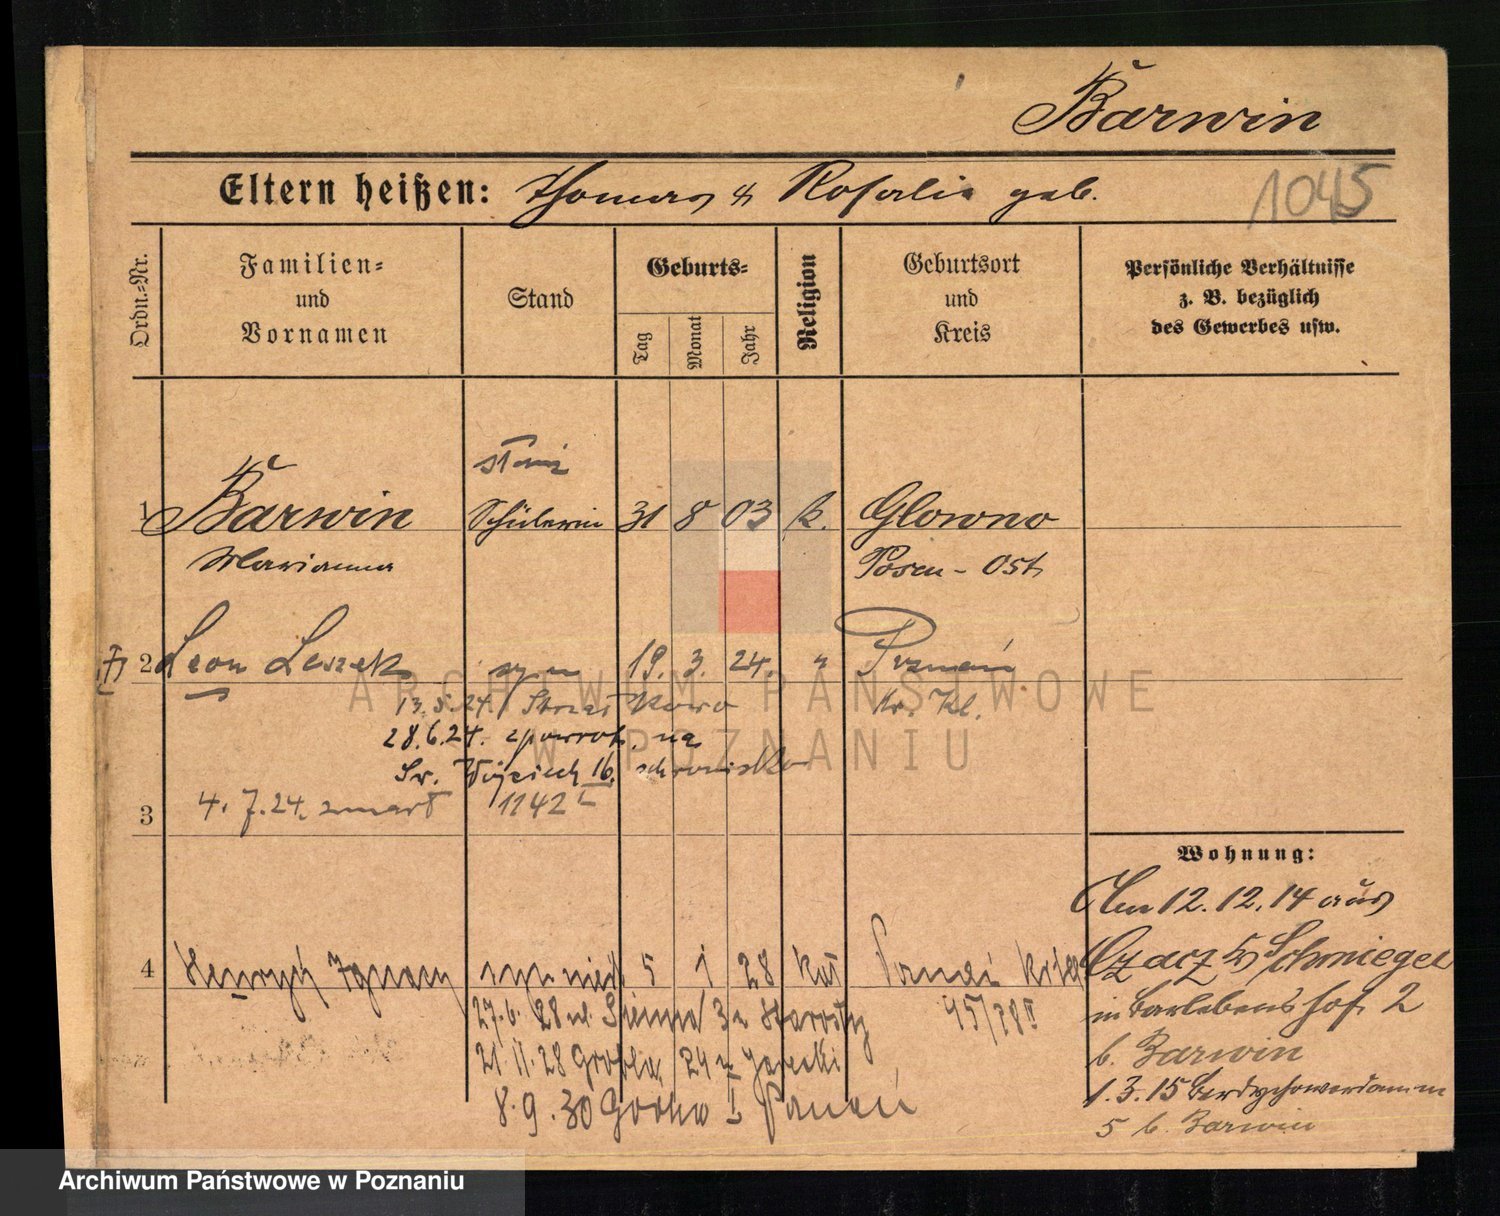 Barwin
Eltern heißen: Thomas & Rosalie geb.
1045
Ordn.-Nr.
Familien-
und
Vornamen
Stand
Geburts-
Tag
Monat
Jahr
Religion
Geburtsort
und
Kreis
Persönliche Verhältnisse
z. B. bezüglich
des Gewerbes usw.
1 Barwin Schülerin 31 8 03 k. Glowno
Marianna Posen-Ost
2 Leon Leszek syn 19. 3. 24. " Poznań
13.5.24.
28.6.24. zpowrot. na
Św. Wojciech 16. schronisko
3 4.7.24. zmarł 1142
4 Henryk Ignacy syn 5 1 28 kat
27.6.28 ul. 3
45/28 II
21.11.28 Grobla 24 z Jarecki
8.9.30
Wohnung:
Am 12.12.14 aus
Czacz Schmiegel
in Barlebenshof 2
b. Barwin
1.3.15 Berdychowerdamm
5 b. Barwin
ARCHIWUM PAŃSTWOWE
W POZNANIU
Archiwum Państwowe w Poznaniu